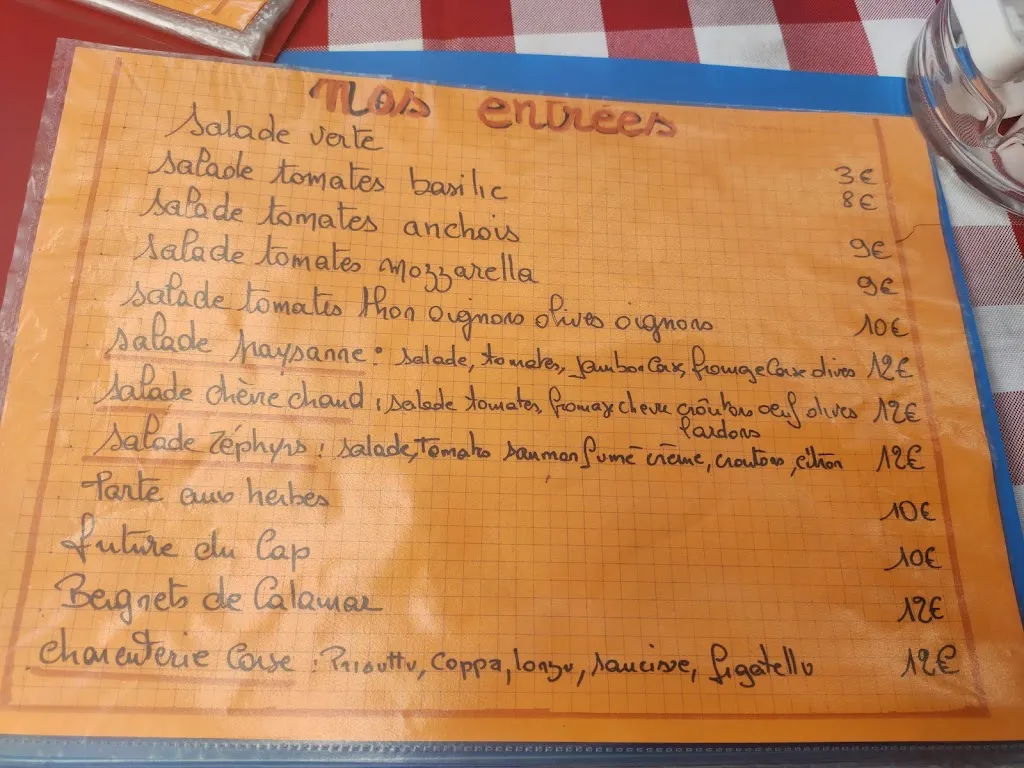 Nos entrées
Salade verte 3€
Salade tomates basilic 8€
Salade tomates anchois 9€
Salade tomates mozzarella 9€
Salade tomates thon oignons olives oignons 10€
Salade paysanne : salade, tomates, jambon Corse, fromage Corse olives 12€
Salade chèvre chaud : salade tomates, fromage chevre croûtons oeuf olives 12€
lardons
Salade Zéphyrs : salade, Tomates saumon fumé crème, croutons, citron 12€
Tarte aux herbes 10€
friture du Cap 10€
Beignets de Calamar 12€
Charcuterie Corse : Prisuttu, Coppa, lonzu, saucisse, figatellu 12€